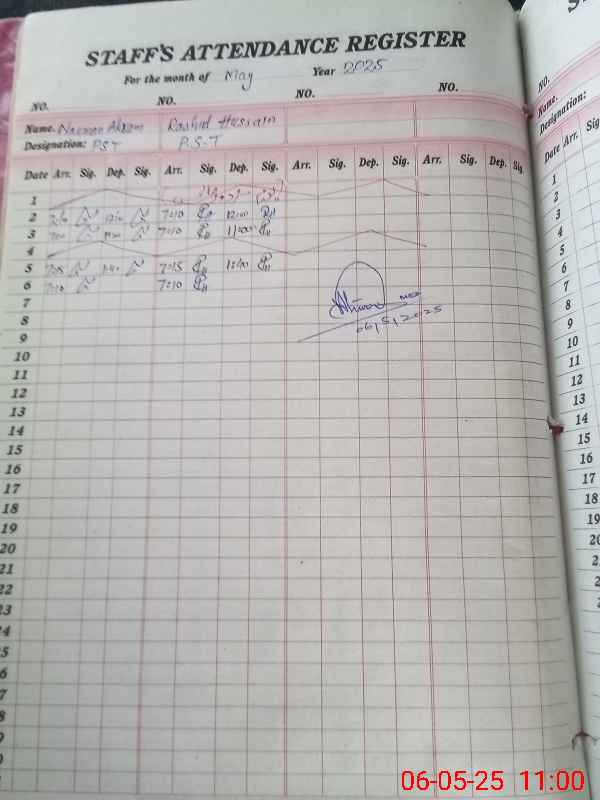 STAFF'S ATTENDANCE REGISTER
For the month of May Year 2025
NO. NO. NO. NO.
Name. Nauman Akram Rashid Hussain
Designation: PST P.S.T
Date Arr. Sig. Dep. Sig. Arr. Sig. Dep. Sig. Arr. Sig. Dep. Sig. Arr. Sig. Dep. Sig.
1
2 7:10 12:00
3 7:10 11:00
4
5 7:15
6 7:10 7:10
7
8
06/5/2025
9
10
11
12
13
14
15
16
17
18
19
20
21
22
23
4
5
6
7
8
9
0
NO.
Name.
Designation:
Date Arr. Sig.
1
2
3
4
5
6
7
8
9
10
11
12
13
14
15
16
17
18
19
06-05-25 11:00